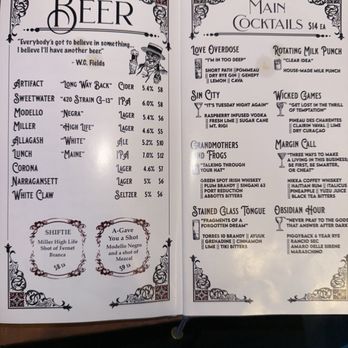 BEER
"Everybody's got to believe in something.
I believe I'll have another beer."
- W.C. Fields
ARTIFACT "LONG WAY BACK" CIDER 5.4% $8
SWEETWATER "420 STRAIN G-13" IPA 6.0% $8
MODELLO "NEGRA" LAGER 5.4% $6
MILLER "HIGH LIFE" LAGER 4.6% $5
ALLAGASH "WHITE" ALE 5.2% $10
LUNCH "MAINE" IPA 7.0% $12
CORONA LAGER 4.6% $7
NARRAGANSETT LAGER 5% $6
WHITE CLAW SELTZER 5% $6
SHIFTIE
Miller High Life
Shot of Fernet
Branca
A-Gave
You a Shot
Modello Negra
and a shot of
Mezcal
MAIN
COCKTAILS $14 EA
LOVE OVERDOSE
"I'M IN TOO DEEP"
SHORT PATH
|| DRY RYE GIN || GENEPY
|| LEMON || CAVA
SIN CITY
"IT'S TUESDAY NIGHT AGAIN"
RASPBERRY INFUSED VODKA
|| FRESH LIME || SUGAR CANE
GRANDMOTHERS
AND FROGS
"TALKING THROUGH
YOUR HAT"
GREEN SPOT IRISH WHISKEY
|| PLUM BRANDY || SINGANI 63
|| PORT REDUCTION
ABBOTTS BITTERS
STAINED GLASS TONGUE
"FRAGMENTS OF A
FORGOTTEN DREAM"
TORRES 10 BRANDY || AYUUK
GRENADINE || CINNAMON
LIME || TIKI BITTERS
ROTATING MILK PUNCH
"CLEAR IDEA"
HOUSE-MADE MILK PUNCH
WICKED GAMES
"GET LOST IN THE THRILL
OF TEMPTATION"
PINEAU DES CHARENTES
|| CLAIRIN VAVAL || LIME
DRY CURAÇAO
MARGIN CALL
"THREE WAYS TO MAKE
A LIVING IN THIS BUSINESS;
BE FIRST, BE SMARTER,
OR CHEAT"
NIKKA COFFEY WHISKEY
|| HAITIAN RUM ||
PINEAPPLE || YUZU JUICE
BLACK TEA BITTERS
OBSIDIAN HOUR
"NEVER PRAY TO THE GODS
THAT ANSWER AFTER DARK"
PIGGYBACK 6 YEAR RYE
|| RANCIO SEC
AMARO DELLE SIRENE
MARASCHINO